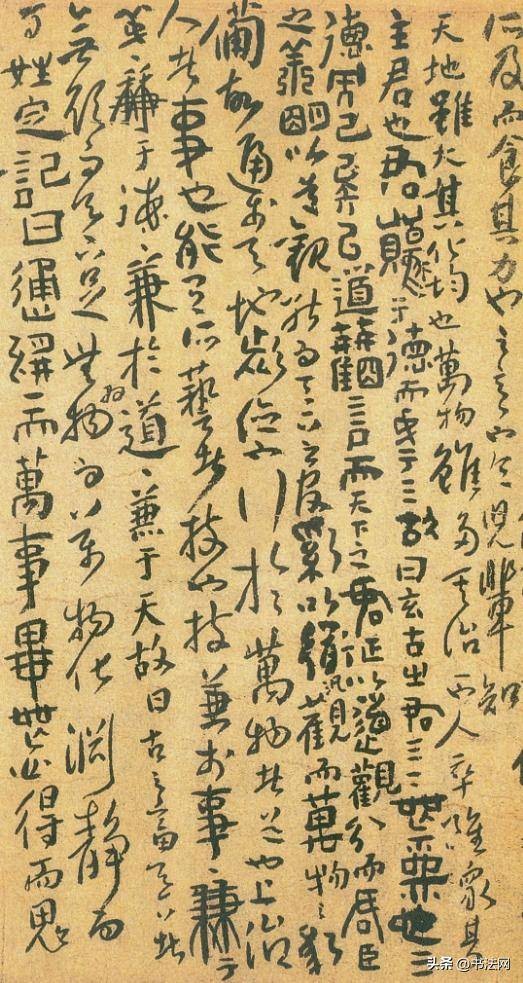 所及而食其力也
天地雖大其化均也萬物雖多其治一也人卒雖衆其
主君也君原于德而成于天故曰玄古之君天下無爲也天
德而已矣以道觀言而天下之君正以道觀分而君臣
之義明以道觀能而天下之官治以道汎觀而萬物之應
備故通於天地者德也行於萬物者道也上治
人者事也能有所藝者技也技兼於事〻兼于
義〻兼于德〻兼於道〻兼于天故曰古之畜天下者
無欲而天下足無爲而萬物化淵靜而
百姓定記曰通於一而萬事畢無心得而鬼
头条 @书法网